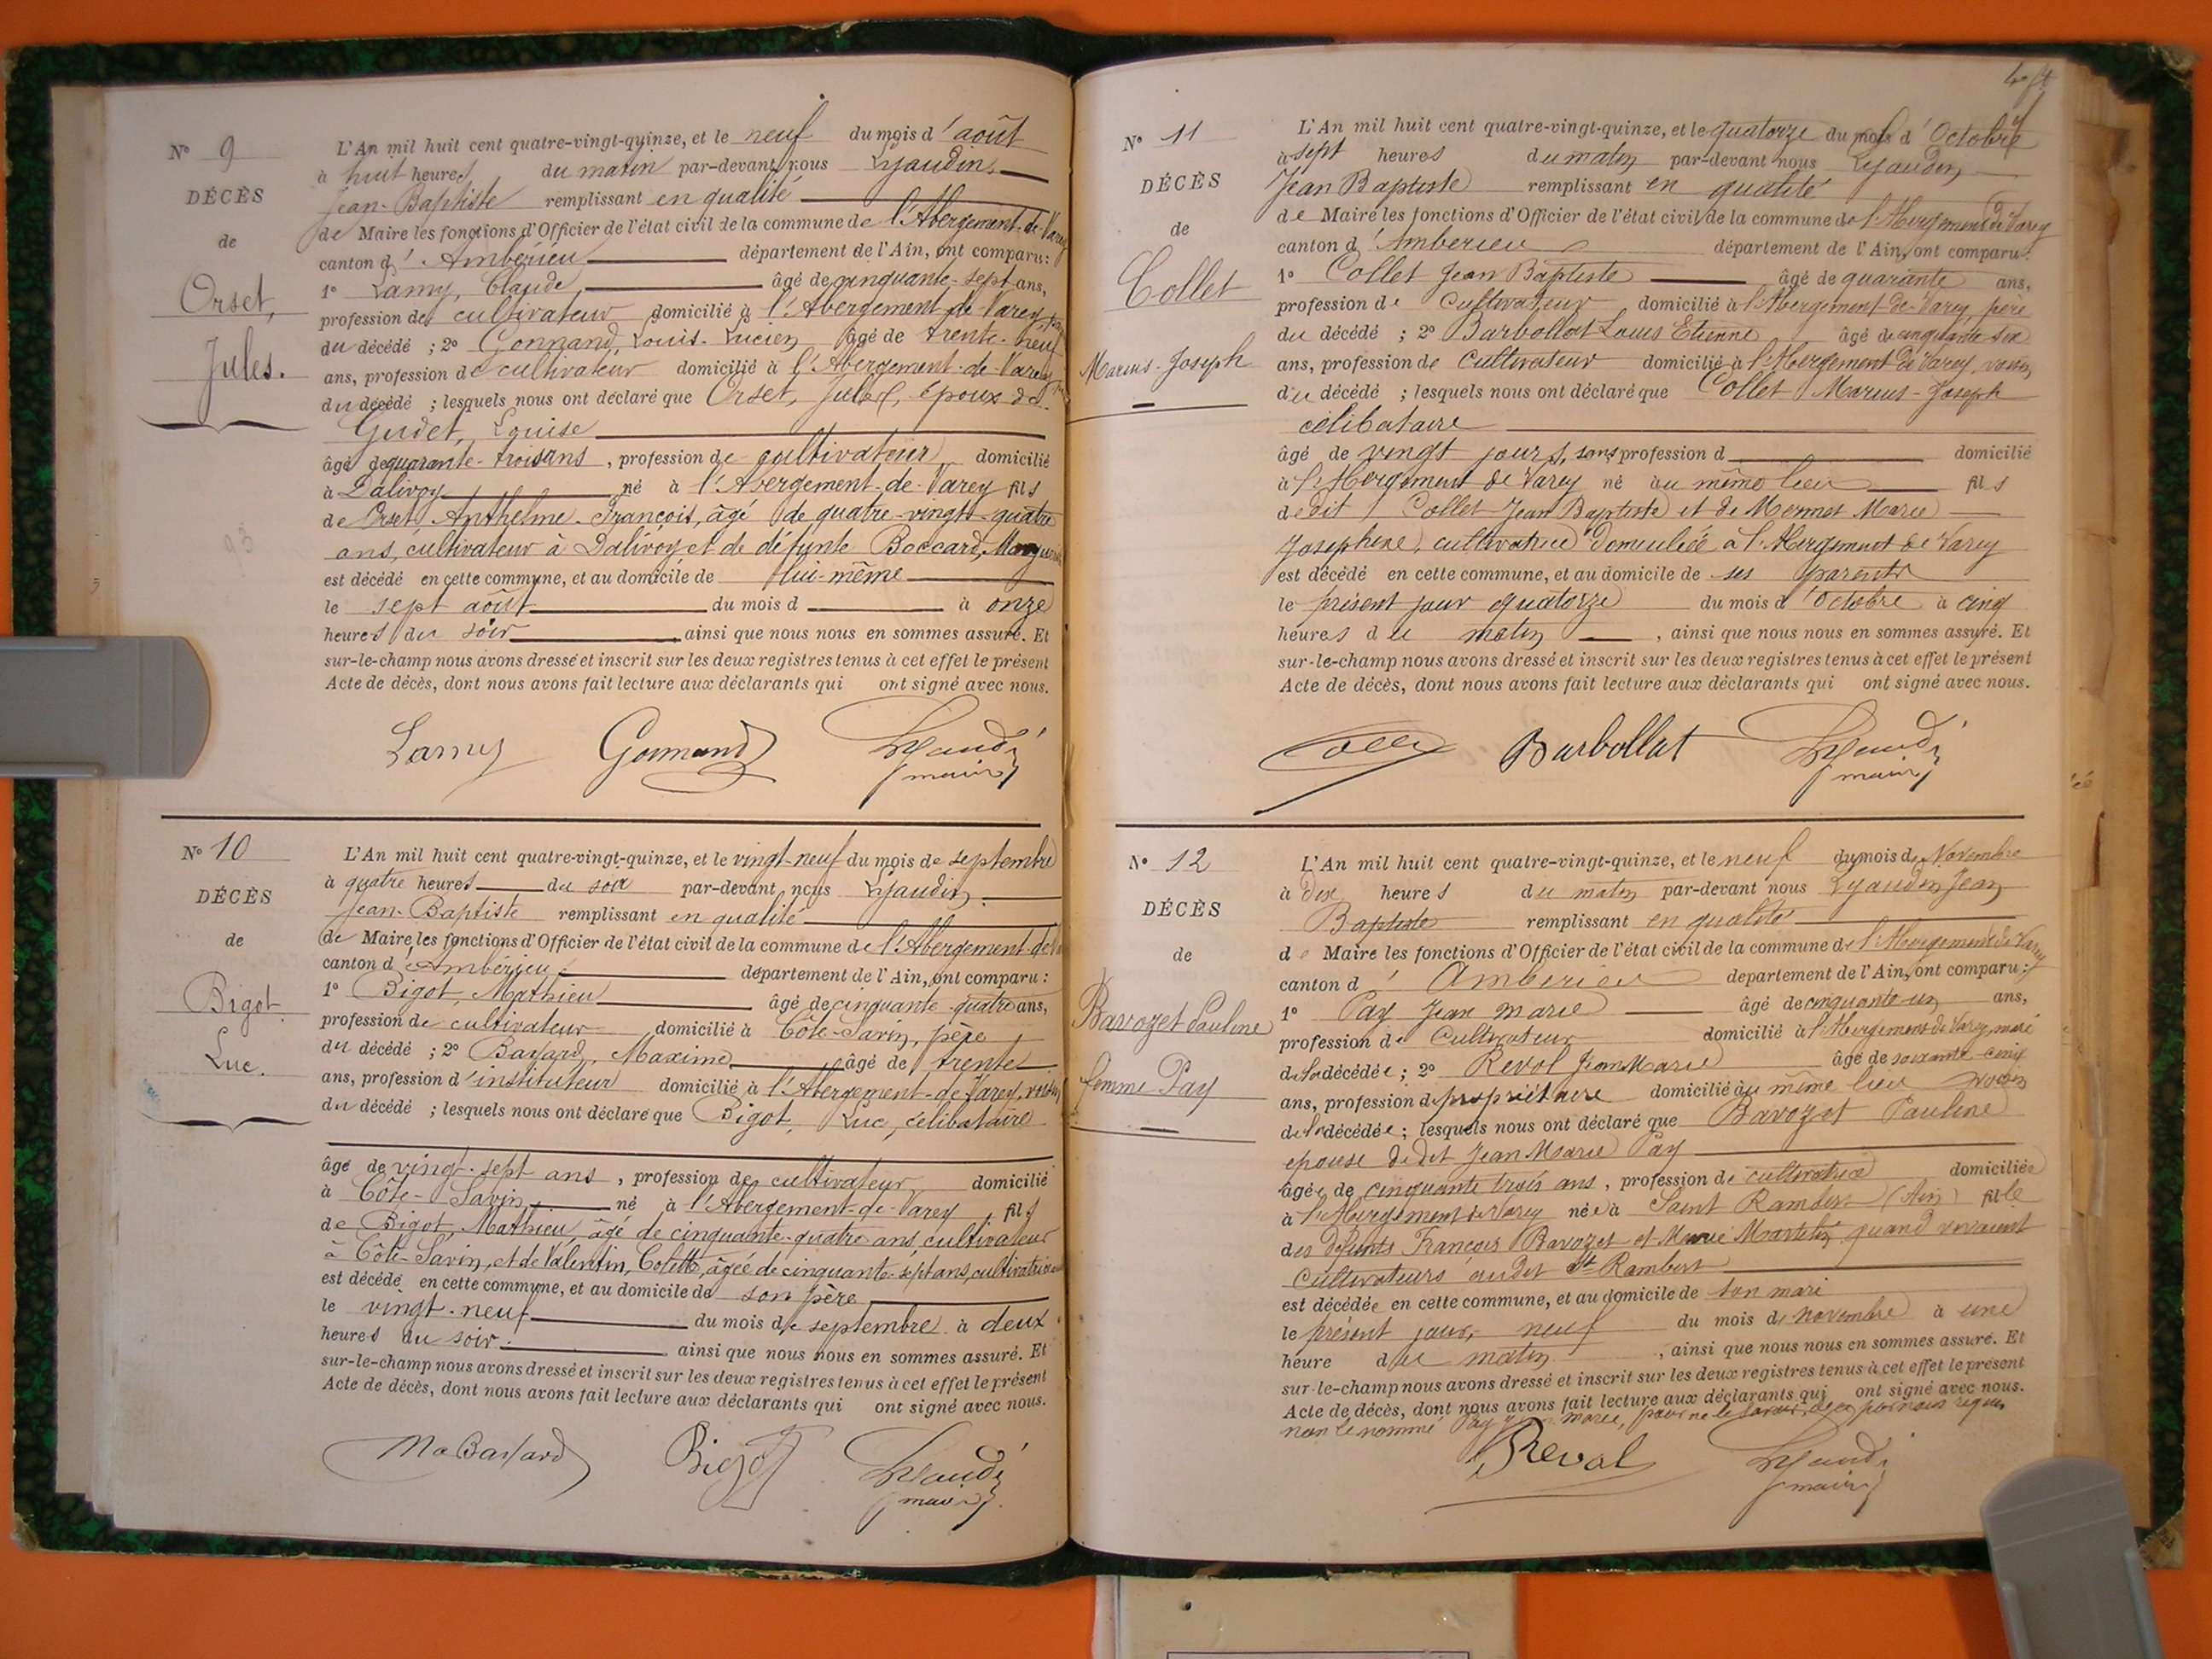 N° 9
DÉCÈS
de
Orset,
Jules.
L'An mil huit cent quatre-vingt-quinze, et le neuf du mois d'août
à huit heures du matin par-devant nous Lyaudin
Jean-Baptiste remplissant en qualité
de Maire les fonctions d'Officier de l'état civil de la commune de l'Abergement-de-Varey
canton d'Ambérieu département de l'Ain, ont comparu:
1° Lamy, Claude, âgé de cinquante-sept ans,
profession de cultivateur domicilié à l'Abergement de Varey
du décédé ; 2° Gonnand, Louis-Lucien âgé de trente-neuf
ans, profession de cultivateur domicilié à l'Abergement-de-Varey
du décédé ; lesquels nous ont déclaré que Orset, Jules, époux de
Gudet, Louise
âgé de quarante-trois ans, profession de cultivateur domicilié
à Dalivoy né à l'Abergement-de-Varey fils
de Orset Anthelme-François, âgé de quatre-vingt-quatre
ans, cultivateur à Dalivoy et de défunte Boccard,
est décédé en cette commune, et au domicile de lui-même
le sept août du mois d à onze
heures du soir ainsi que nous nous en sommes assuré. Et
sur-le-champ nous avons dressé et inscrit sur les deux registres tenus à cet effet le présent
Acte de décès, dont nous avons fait lecture aux déclarants qui ont signé avec nous.
Lamy Gonnand Lyaudin
maire
N° 10
DÉCÈS
de
Bigot
Luc.
L'An mil huit cent quatre-vingt-quinze, et le vingt-neuf du mois de septembre
à quatre heures du soir par-devant nous Lyaudin
Jean-Baptiste remplissant en qualité
de Maire les fonctions d'Officier de l'état civil de la commune de l'Abergement-de
canton d'Ambérieu département de l'Ain, ont comparu :
1° Bigot, Mathieu âgé de cinquante-quatre ans,
profession de cultivateur domicilié à Côte-Savin, père
du décédé ; 2° Bassard, Maxime âgé de trente
ans, profession d'instituteur domicilié à l'Abergement-de-Varey, voisin
du décédé ; lesquels nous ont déclaré que Bigot, Luc, célibataire
âgé de vingt-sept ans, profession de cultivateur domicilié
à Côte-Savin né à l'Abergement-de-Varey, fils
de Bigot, Mathieu, âgé de cinquante-quatre ans cultivateur
à Côte-Savin, et de Valentin, Colette, âgée de cinquante-sept ans, cultivatrice
est décédé en cette commune, et au domicile de son père
le vingt-neuf du mois de septembre à deux
heures du soir ainsi que nous nous en sommes assuré. Et
sur-le-champ nous avons dressé et inscrit sur les deux registres tenus à cet effet le présent
Acte de décès, dont nous avons fait lecture aux déclarants qui ont signé avec nous.
Ma Bassard Bigot Lyaudin
maire
N° 11
DÉCÈS
de
Collet
Marius-Joseph
L'An mil huit cent quatre-vingt-quinze, et le quatorze du mois d'Octobre
à sept heures du matin par-devant nous Lyaudin
Jean Baptiste remplissant en qualité
de Maire les fonctions d'Officier de l'état civil de la commune de l'Abergement de Varey
canton d'Amberieu département de l'Ain, ont comparu:
1° Collet Jean Baptiste âgé de quarante ans,
profession de Cultivateur domicilié à l'Abergement-de-Varey, père
du décédé ; 2° Barbollat Louis Etienne âgé de cinquante six
ans, profession de Cultivateur domicilié à l'Abergement de Varey, voisin
du décédé ; lesquels nous ont déclaré que Collet Marius-Joseph
célibataire
âgé de vingt jours, sans profession d domicilié
à l'Abergement de Varey né au même lieu fils
dedit Collet Jean Baptiste et de Mermet Marie
Josephine, cultivatrice domiciliée à l'Abergement de Varey
est décédé en cette commune, et au domicile de ses parents
le présent jour quatorze du mois d'Octobre à cinq
heures du matin, ainsi que nous nous en sommes assuré. Et
sur-le-champ nous avons dressé et inscrit sur les deux registres tenus à cet effet le présent
Acte de décès, dont nous avons fait lecture aux déclarants qui ont signé avec nous.
Collet Barbollat Lyaudin
maire
N° 12
DÉCÈS
de
Bavozet Pauline
femme Pay
L'An mil huit cent quatre-vingt-quinze, et le neuf du mois de Novembre
à dix heures du matin par-devant nous Lyaudin Jean
Baptiste remplissant en qualité
de Maire les fonctions d'Officier de l'état civil de la commune de l'Abergement de Varey
canton d'Amberieu département de l'Ain, ont comparu :
1° Pay Jean Marie âgé de cinquante un ans,
profession de Cultivateur domicilié à l'Abergement de Varey, mari
de la décédée ; 2° Revol Jean Marie âgé de soixante cinq
ans, profession de propriétaire domicilié au même lieu voisin
de la décédée ; lesquels nous ont déclaré que Bavozet Pauline
épouse dedit Jean Marie Pay
âgée de cinquante trois ans, profession de cultivatrice domiciliée
à l'Abergement de Varey née à Saint Rambert (Ain) fille
des défunts François Bavozet et Marie Martelin quand vivaient
Cultivateurs audit St Rambert
est décédée en cette commune, et au domicile de son mari
le présent jour, neuf du mois de novembre à une
heure du matin, ainsi que nous nous en sommes assuré. Et
sur-le-champ nous avons dressé et inscrit sur les deux registres tenus à cet effet le présent
Acte de décès, dont nous avons fait lecture aux déclarants qui ont signé avec nous.
non le nommé Pay Jean Marie, pour ne le savoir, de ce par nous requis
Revol Lyaudin
maire